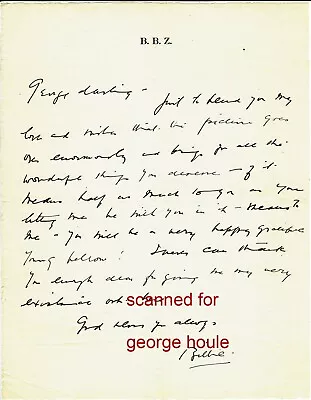 B. B. Z.
George darling - Just to send you my
love and wishes that the picture goes
over enormously and brings you all the
wonderful things you deserve - if it
means half as much to you as your
letting me be with you in it - means to
me - you will be a very happy grateful
young fellow! I never can thank
you enough dear for giving me my very
scanned for
God bless you always
george houle
Billie.